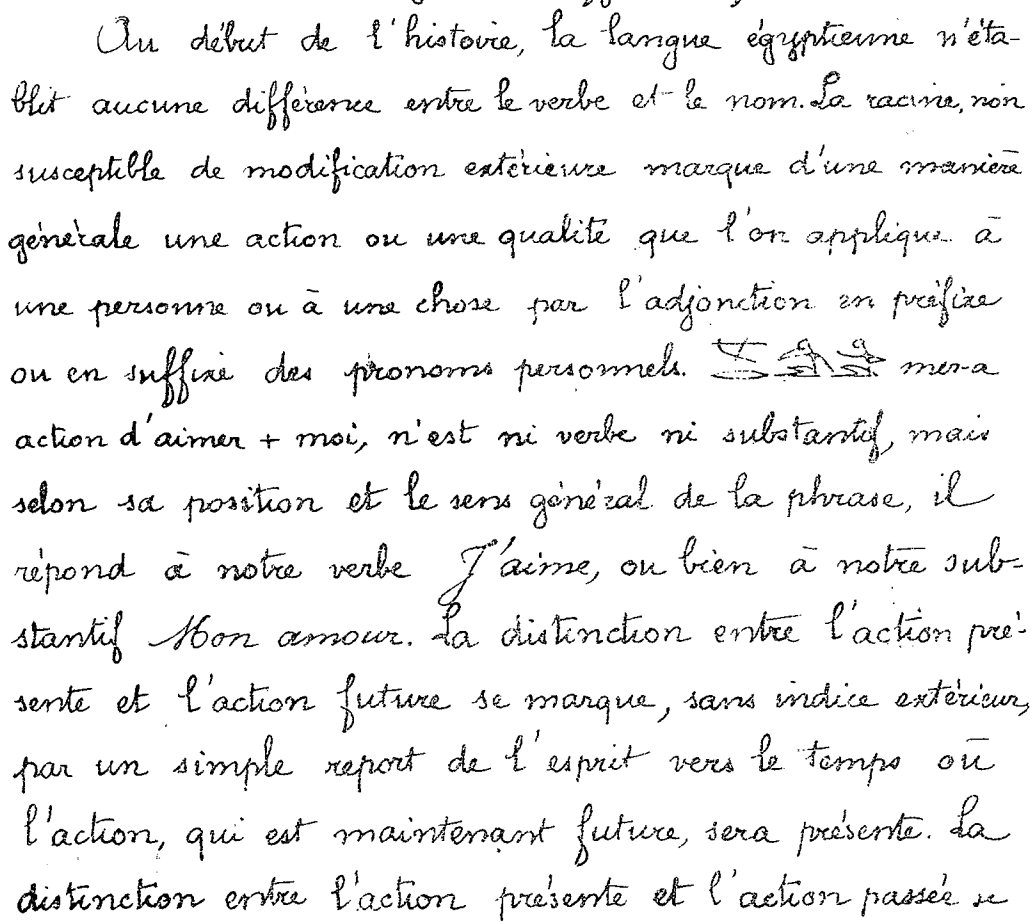 Au début de l'histoire, la langue égyptienne n'éta-
blit aucune différence entre le verbe et le nom. La racine, non
susceptible de modification extérieure marque d'une manière
générale une action ou une qualité que l'on applique à
une personne ou à une chose par l'adjonction en préfixe
ou en suffixe des pronoms personnels. mer-a
action d'aimer + moi, n'est ni verbe ni substantif, mais
selon sa position et le sens général de la phrase, il
répond à notre verbe J'aime, ou bien à notre sub-
stantif Mon amour. La distinction entre l'action pré-
sente et l'action future se marque, sans indice extérieur,
par un simple report de l'esprit vers le temps où
l'action, qui est maintenant future, sera présente. La
distinction entre l'action présente et l'action passée se